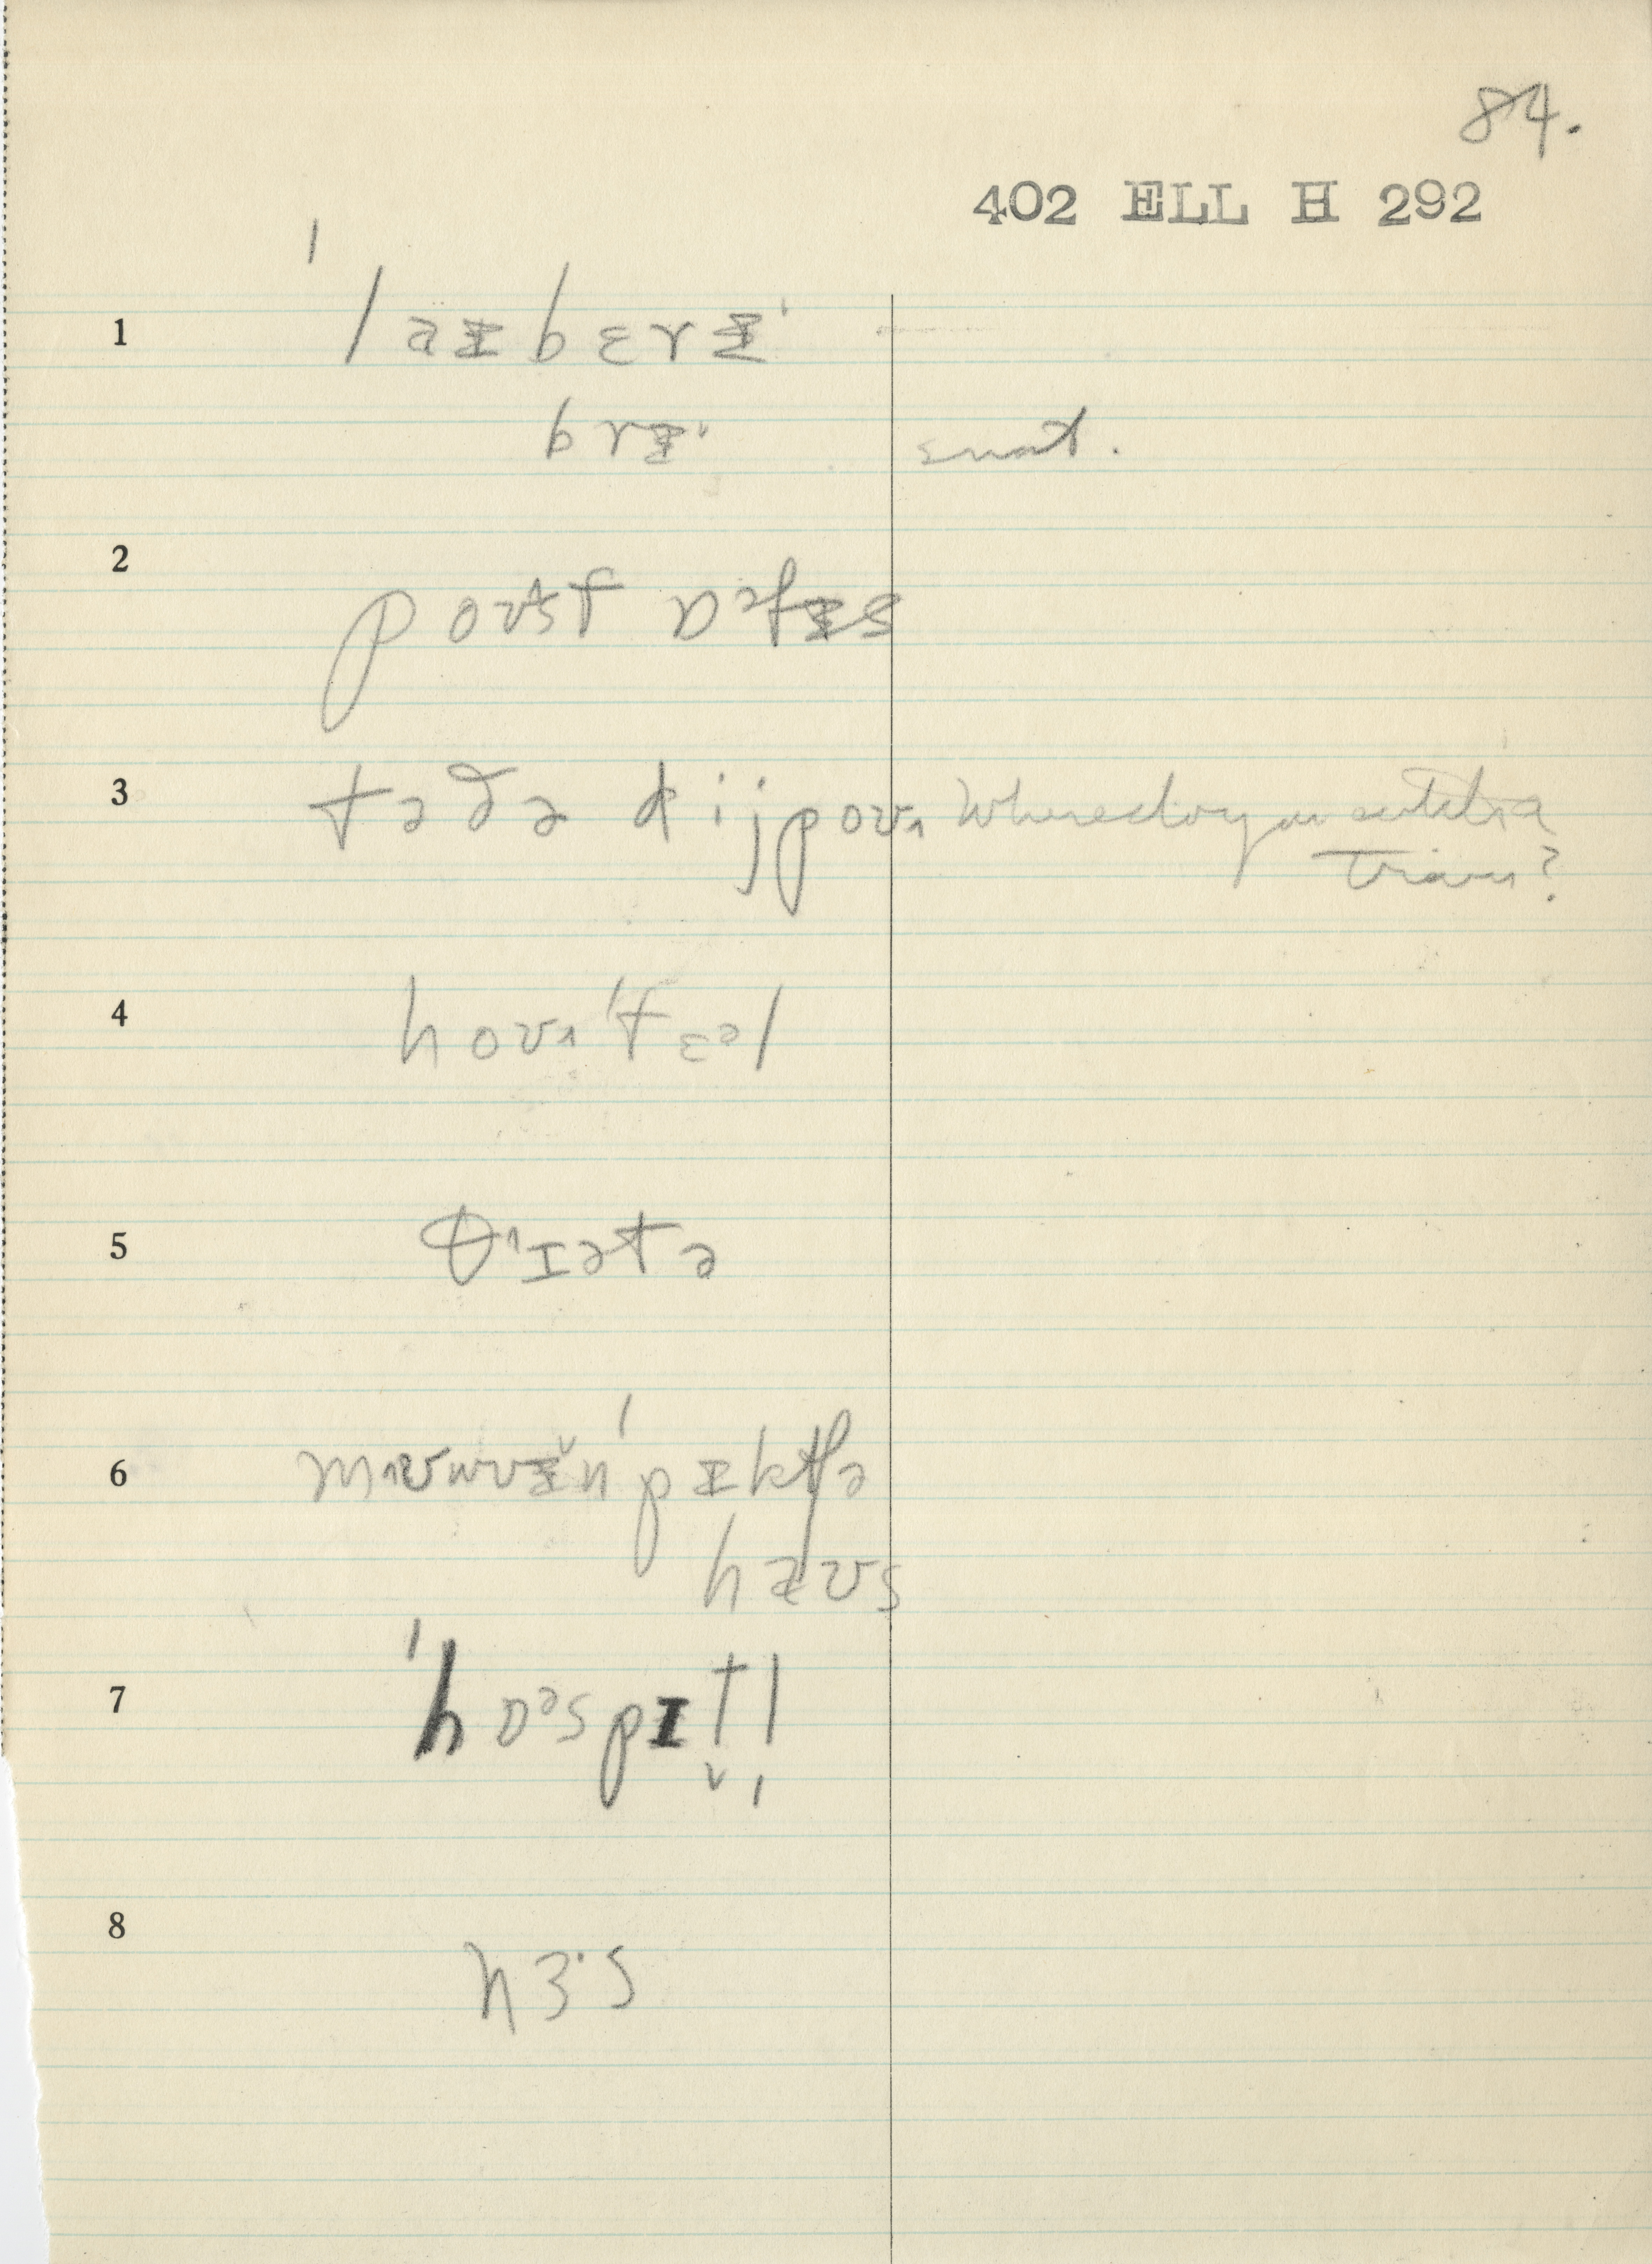 84.
402 ELL H 292
1 ˈlaɪbɛrɨ
brɨ
2 poʊst ɒᵊfɨs
3 tə ðə dijpoʊ Where do you catch a
train?
4 hoʊˈtɛᵊl
5 θˈɪətə
6 ˈpɪktʃə
haʊs
7 ˈhɒᵊspɪt̬l̩
8 nɜˑs